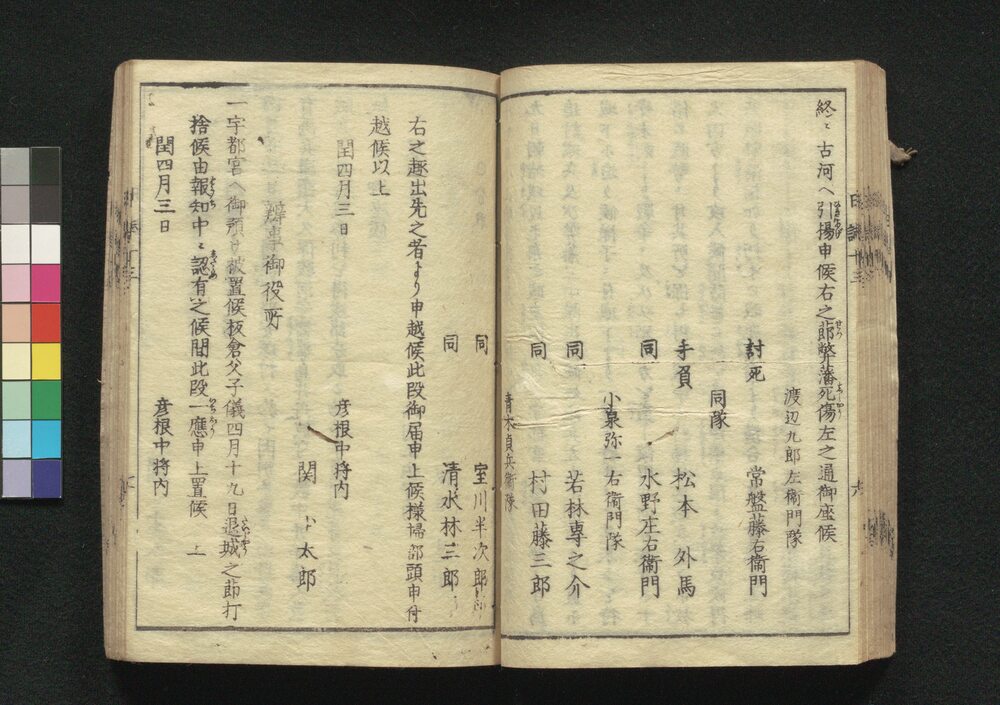 終ニ古河ヘ引揚申候右之節弊藩死傷左之通御座候
渡辺九郎左衞門隊
討死 常盤藤右衞門
同隊
手負 松本 外馬
同 水野庄右衞門
小泉弥一右衞門隊
同 若林専之介
同 村田藤三郎
青木貞兵衞隊
同 室川半次郎
同 清水林三郎
右之趣出先之者より申越候此段御届申上候様掃部頭申付
越候以上
閏四月三日 彦根中将内
関 小太郎
辨事御役所
一宇都宮ヘ御預ケ被置候板倉父子儀四月十九日退城之節打
捨候由報知中ニ認有之候間此段一應申上置候 以上
閏四月三日 彦根中将内